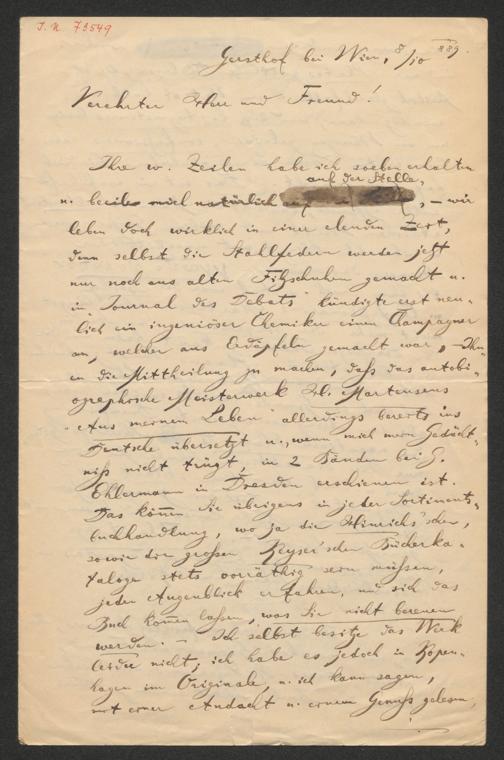 J. N. 73549
Gersthof bei Wien, 8/10 889.
Verehrter Herr und Freund!
Ihre w. Zeilen habe ich soeben erhalten
auf der Stelle,
u. beeile mich natürlich , – wir
leben doch wirklich in einer elenden Zeit,
denn selbst die Stahlfedern werden jetzt
nur noch aus alten Filzschuhen gemacht u.
im "Journal des Debats" kündigte erst neu-
lich ein ingeniöser Chemiker einen Champagner
an, welcher aus Erdäpfeln gemacht war, – Ihn-
en die Mittheilung zu machen, daß das autobi-
ographische Meisterwerk H. Martensens
"Aus meinem Leben" allerdings bereits ins
Deutsche übersetzt u., wenn mich mein Gedächt-
niß nicht trügt, in 2 Bänden bei
Ehlermann in Dresden erschienen ist.
Das können Sie übrigens in jeder Sortiments-
buchhandlung, wo ja die Hinrichs'schen,
sowie die großen Keyser'schen Bücherka-
taloge stets vorräthig sein müssen,
jeden Augenblick erfahren, und sich das
Buch kommen lassen, was Sie nicht bereuen
werden. – Ich selbst besitze das Werk
leider nicht, ich habe es jedoch in Kopen-
hagen im Originale, u. ich kann sagen,
mit einer Andacht u. einem Genuß gelesen,